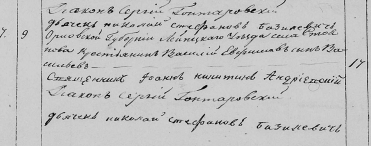 Диаконъ Сергій Гонтаровскій
дьячекъ николай стефановъ базилевичъ
7. 9 Орловской Губерніи уѣзда села
крестьянинъ Василій сынъ Ва-
сильевъ — 17
Священникъ Іоаннъ Андріевскій
Диаконъ Сергій Гонтаровскій
дьячекъ николай стефановъ базилевичъ